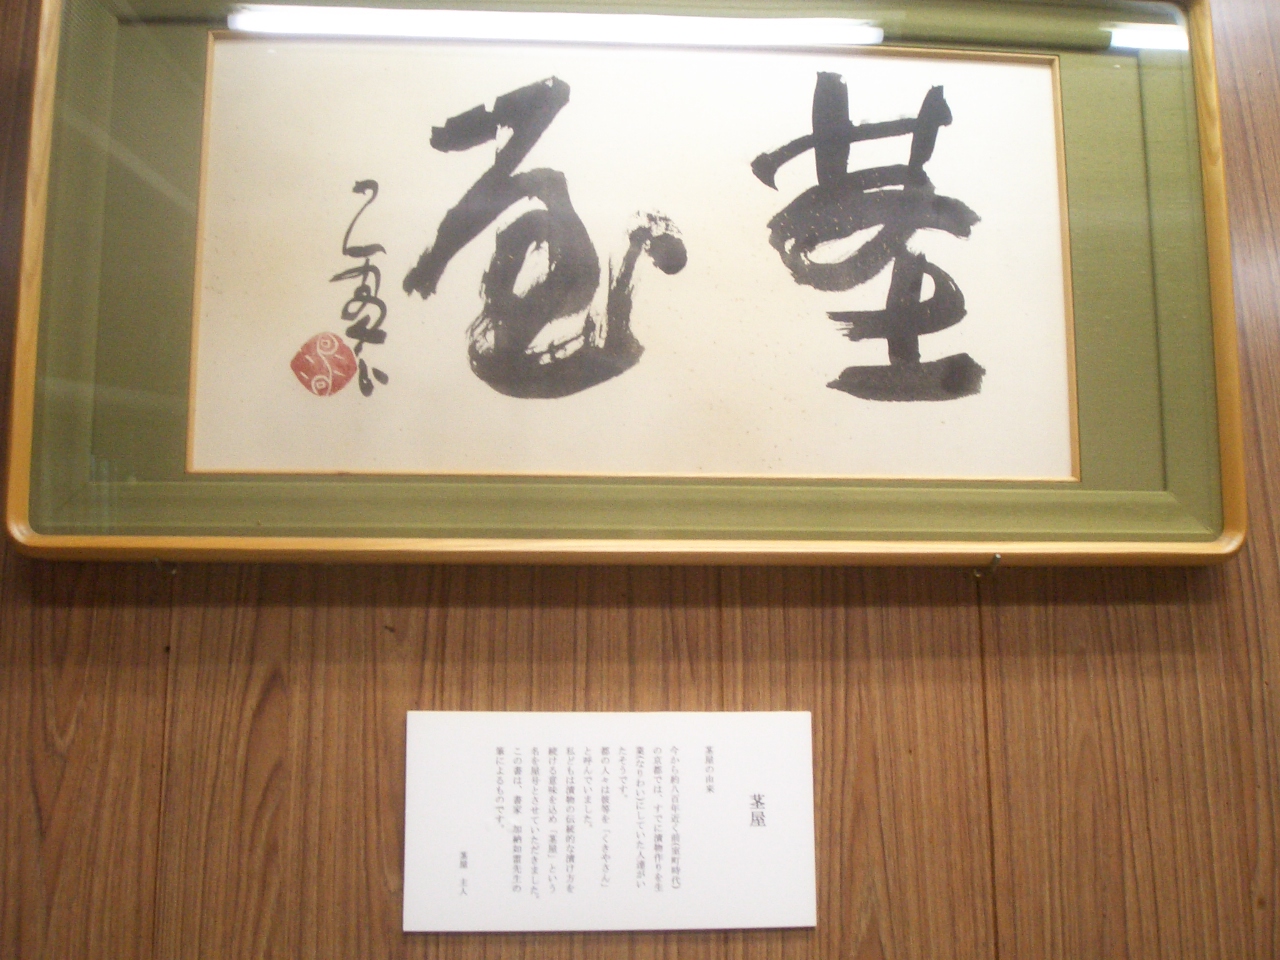 茎屋
茎屋
茎屋の由来
今から約八百年近く前(室町時代)
の京都では、すでに漬物作りを生
業(なりわい)にしていた人達がい
たそうです。
都の人々は彼等を「くきやさん」
と呼んでいました。
私どもは漬物の伝統的な漬け方を
続ける意味を込め「茎屋」という
名を屋号とさせていただきました。
この書は、書家 加納如雷先生の
筆によるものです。
茎屋 主人